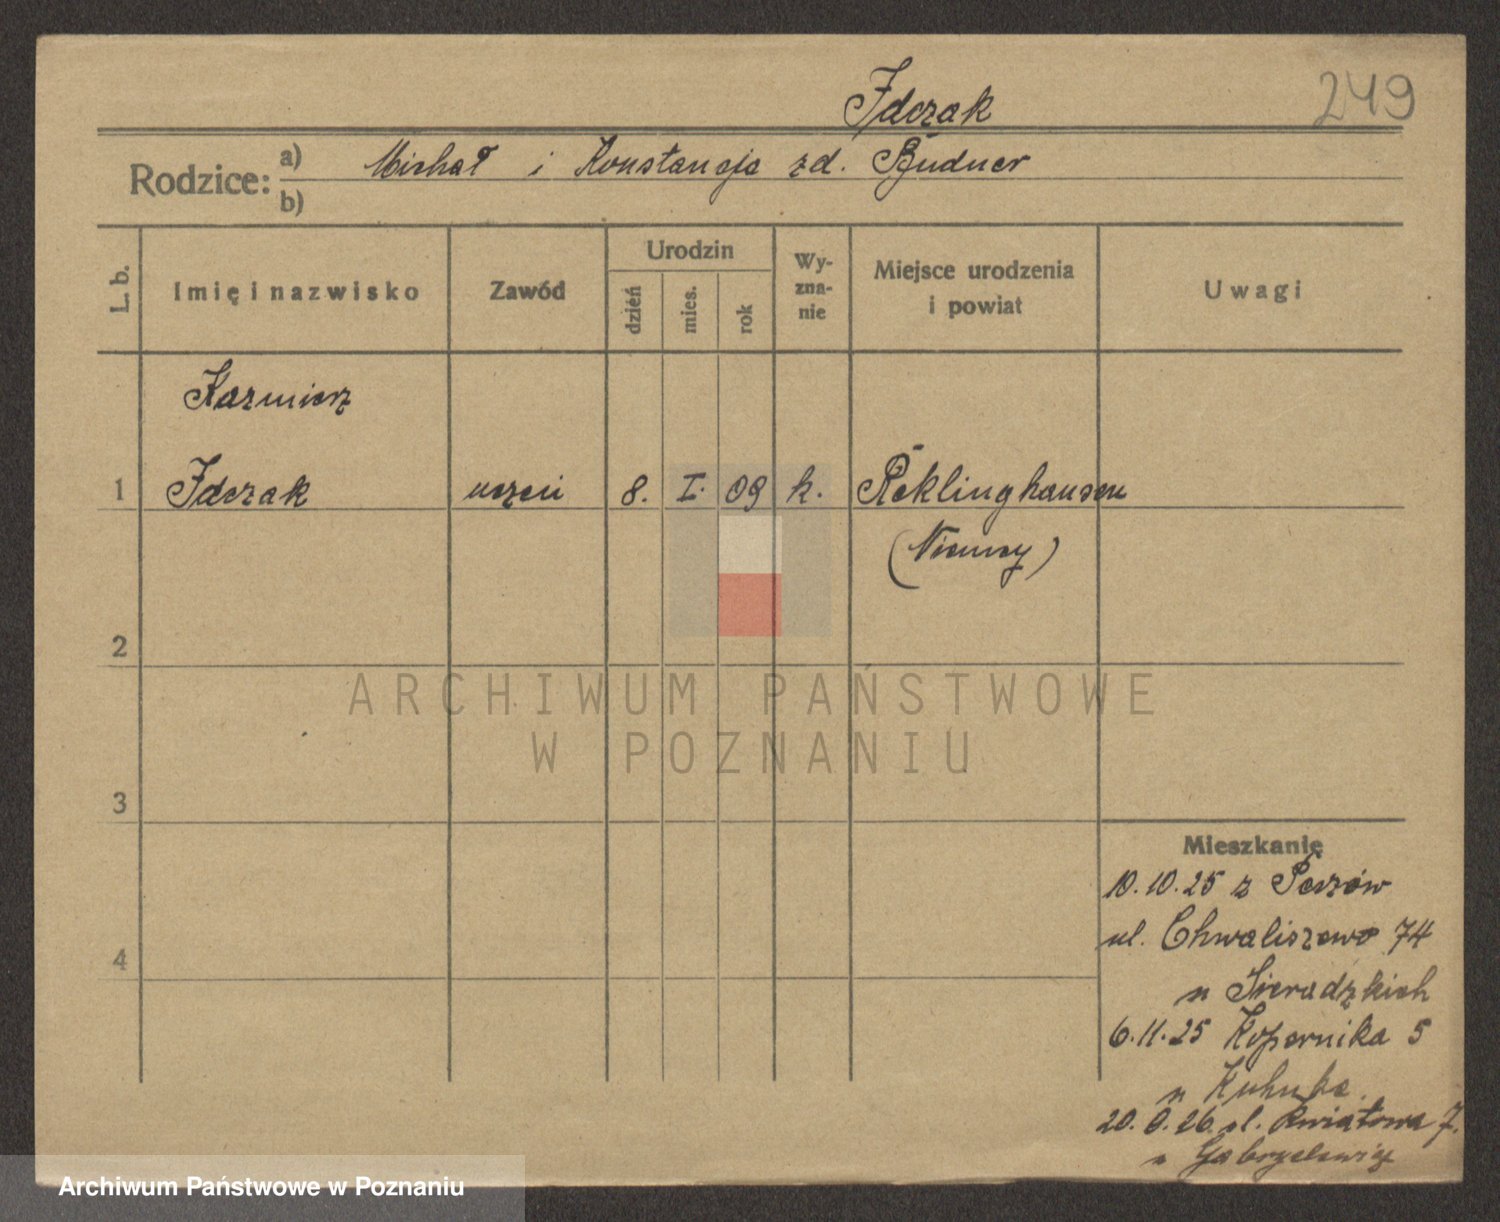 Idczak
249
Rodzice: a) Michał i Konstancja zd. Budner
b)
L. b.
Imię i nazwisko
Zawód
Urodzin
dzień
mies.
rok
Wy-
zna-
nie
Miejsce urodzenia
i powiat
Uwagi
Kazmierz
1 Idczak uczeń 8. I. 09 k. Reklinghausen
(Niemcy)
2
ARCHIWUM PAŃSTWOWE
W POZNANIU
3
Mieszkanie
10.10.25 z
ul. Chwaliszewo 74
4
u Sieradzkich
6.11.25 Kopernika 5
u
ul. Kwiatowa 7.
Archiwum Państwowe w Poznaniu